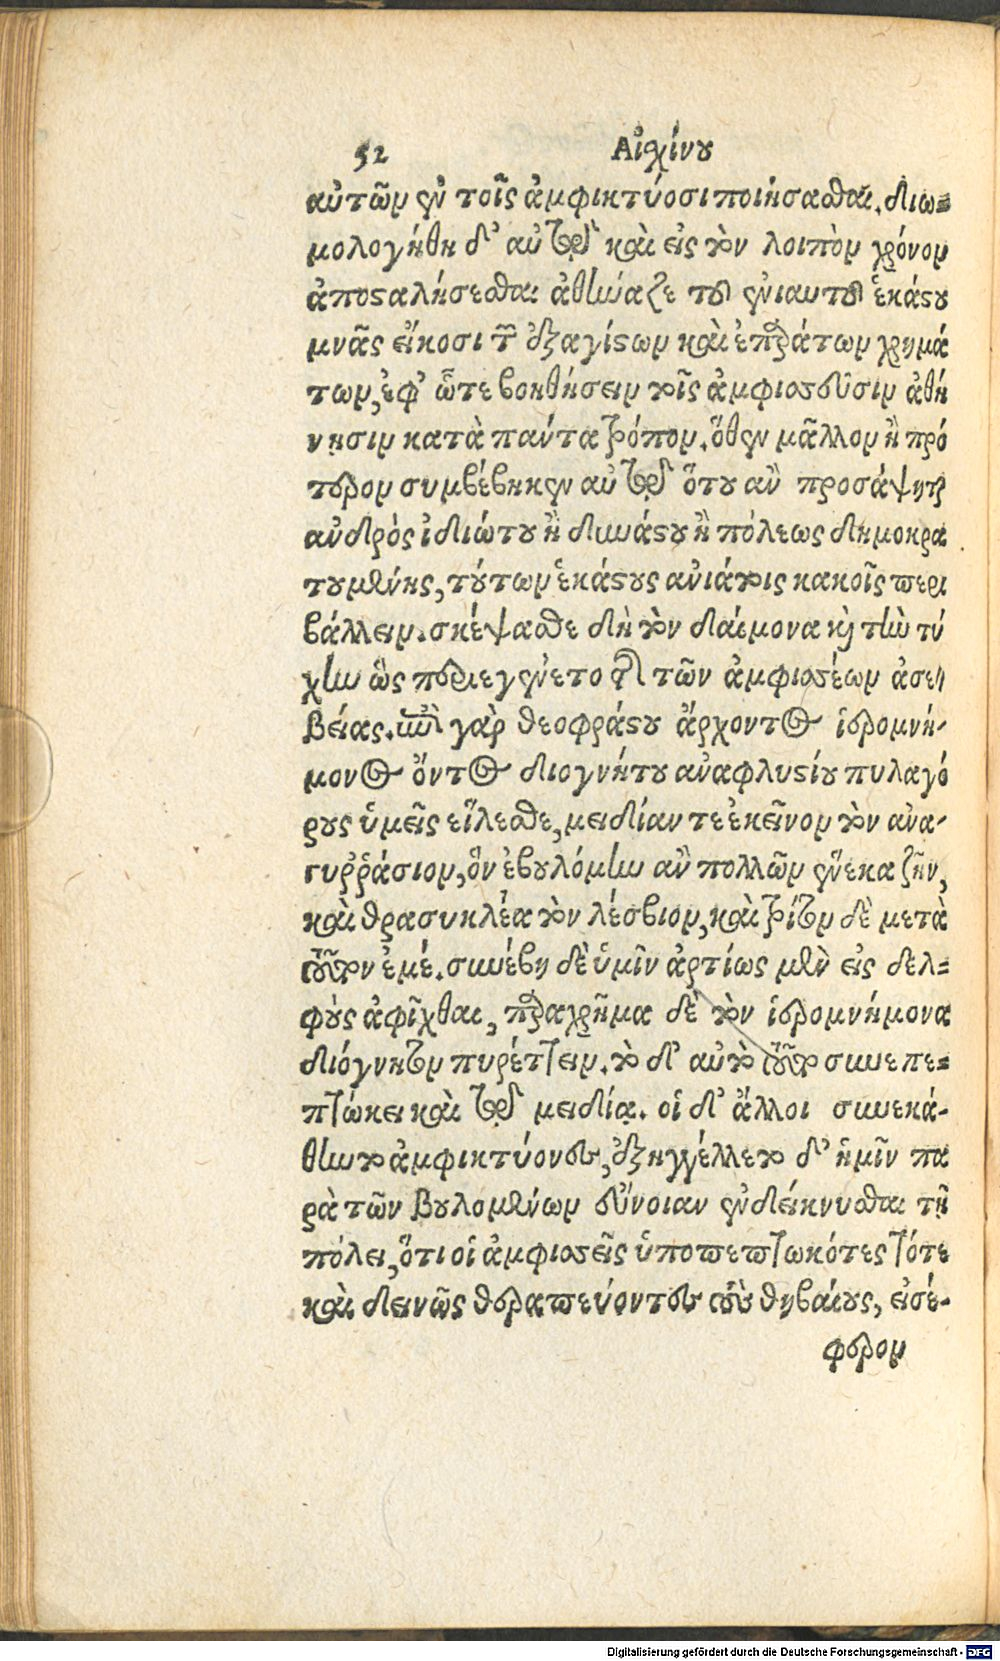 52 Αἰχίνου
αὐτῶν ἐν τοῖς ἀμφικτύοσι ποιήσασθαι. διω-
μολογήθη δ' αὐτῷ καὶ εἰς τὸν λοιπὸν χρόνον
ἀποσαλήσεσθαι ἀθήναζε τοῦ ἐνιαυτοῦ ἑκάστου
μνᾶς εἴκοσι τῶν ἐξαγίστων καὶ ἐπαράτων χρημά
των, ἐφ' ᾧτε βοηθήσειν τοῖς ἀμφισσεῦσιν ἀθή
νῃσιν κατὰ πάντα τρόπον. ὅθεν μᾶλλον ἢ πρό
τερον συμβέβηκεν αὐτῷ ὅτου ἂν προσάψηται
ἀνδρὸς ἰδιώτου ἢ δυνάστου ἢ πόλεως δημοκρα
τουμένης, τούτων ἑκάστους ἀνιάτοις κακοῖς περι
βάλλειν. σκέψασθε δὴ τὸν δαίμονα καὶ τὴν τύ
χην ὡς περιεγένετο τῆς τῶν ἀμφισσέων ἀσε-
βείας. ἐπὶ γὰρ θεοφράστου ἄρχοντος ἱερομνή-
μονος ὄντος διογνήτου ἀναφλυστίου πυλαγό
ρους ὑμεῖς εἵλεσθε, μειδίαν τε ἐκεῖνον τὸν ἀνα-
γυῤῥάσιον, ὃν ἐβουλόμην ἂν πολλῶν ἕνεκα ζῆν,
καὶ θρασυκλέα τὸν λέσβιον, καὶ τρίτον δὲ μετὰ
τούτων ἐμέ. συνέβη δὲ ὑμῖν ἀρτίως μὲν εἰς δελ-
φοὺς ἀφῖχθαι, παραχρῆμα δὲ τὸν ἱερομνήμονα
διόγνητον πυρέττειν. τὸ δ' αὐτὸ τοῦτο συνεπε-
πτώκει καὶ τῷ μειδίᾳ. οἱ δ' ἄλλοι συνεκά-
θηντο ἀμφικτύονες, ἐξηγγέλλετο δ' ἡμῖν πα
ρὰ τῶν βουλομένων εὔνοιαν ἐνδείκνυσθαι τῇ
πόλει, ὅτι οἱ ἀμφισσεῖς ὑποπεπτωκότες τότε
καὶ δεινῶς θεραπεύοντες τοὺς θηβαίους, εἰσέ-
φερον
Digitalisierung gefördert durch die Deutsche Forschungsgemeinschaft - DFG